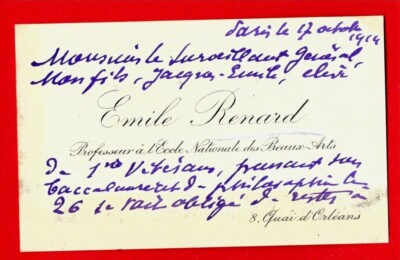 Paris le 17 octobre
1914
Monsieur le Surveillant Général,
Mon fils, Jacques-Emile, élève
Emile Renard
Professeur à l'Ecole Nationale des Beaux-Arts
de 1re Vétérans, passant son
baccalauréat de philosophie le
26 se voit obligé de rester à
8. Quai d'Orléans